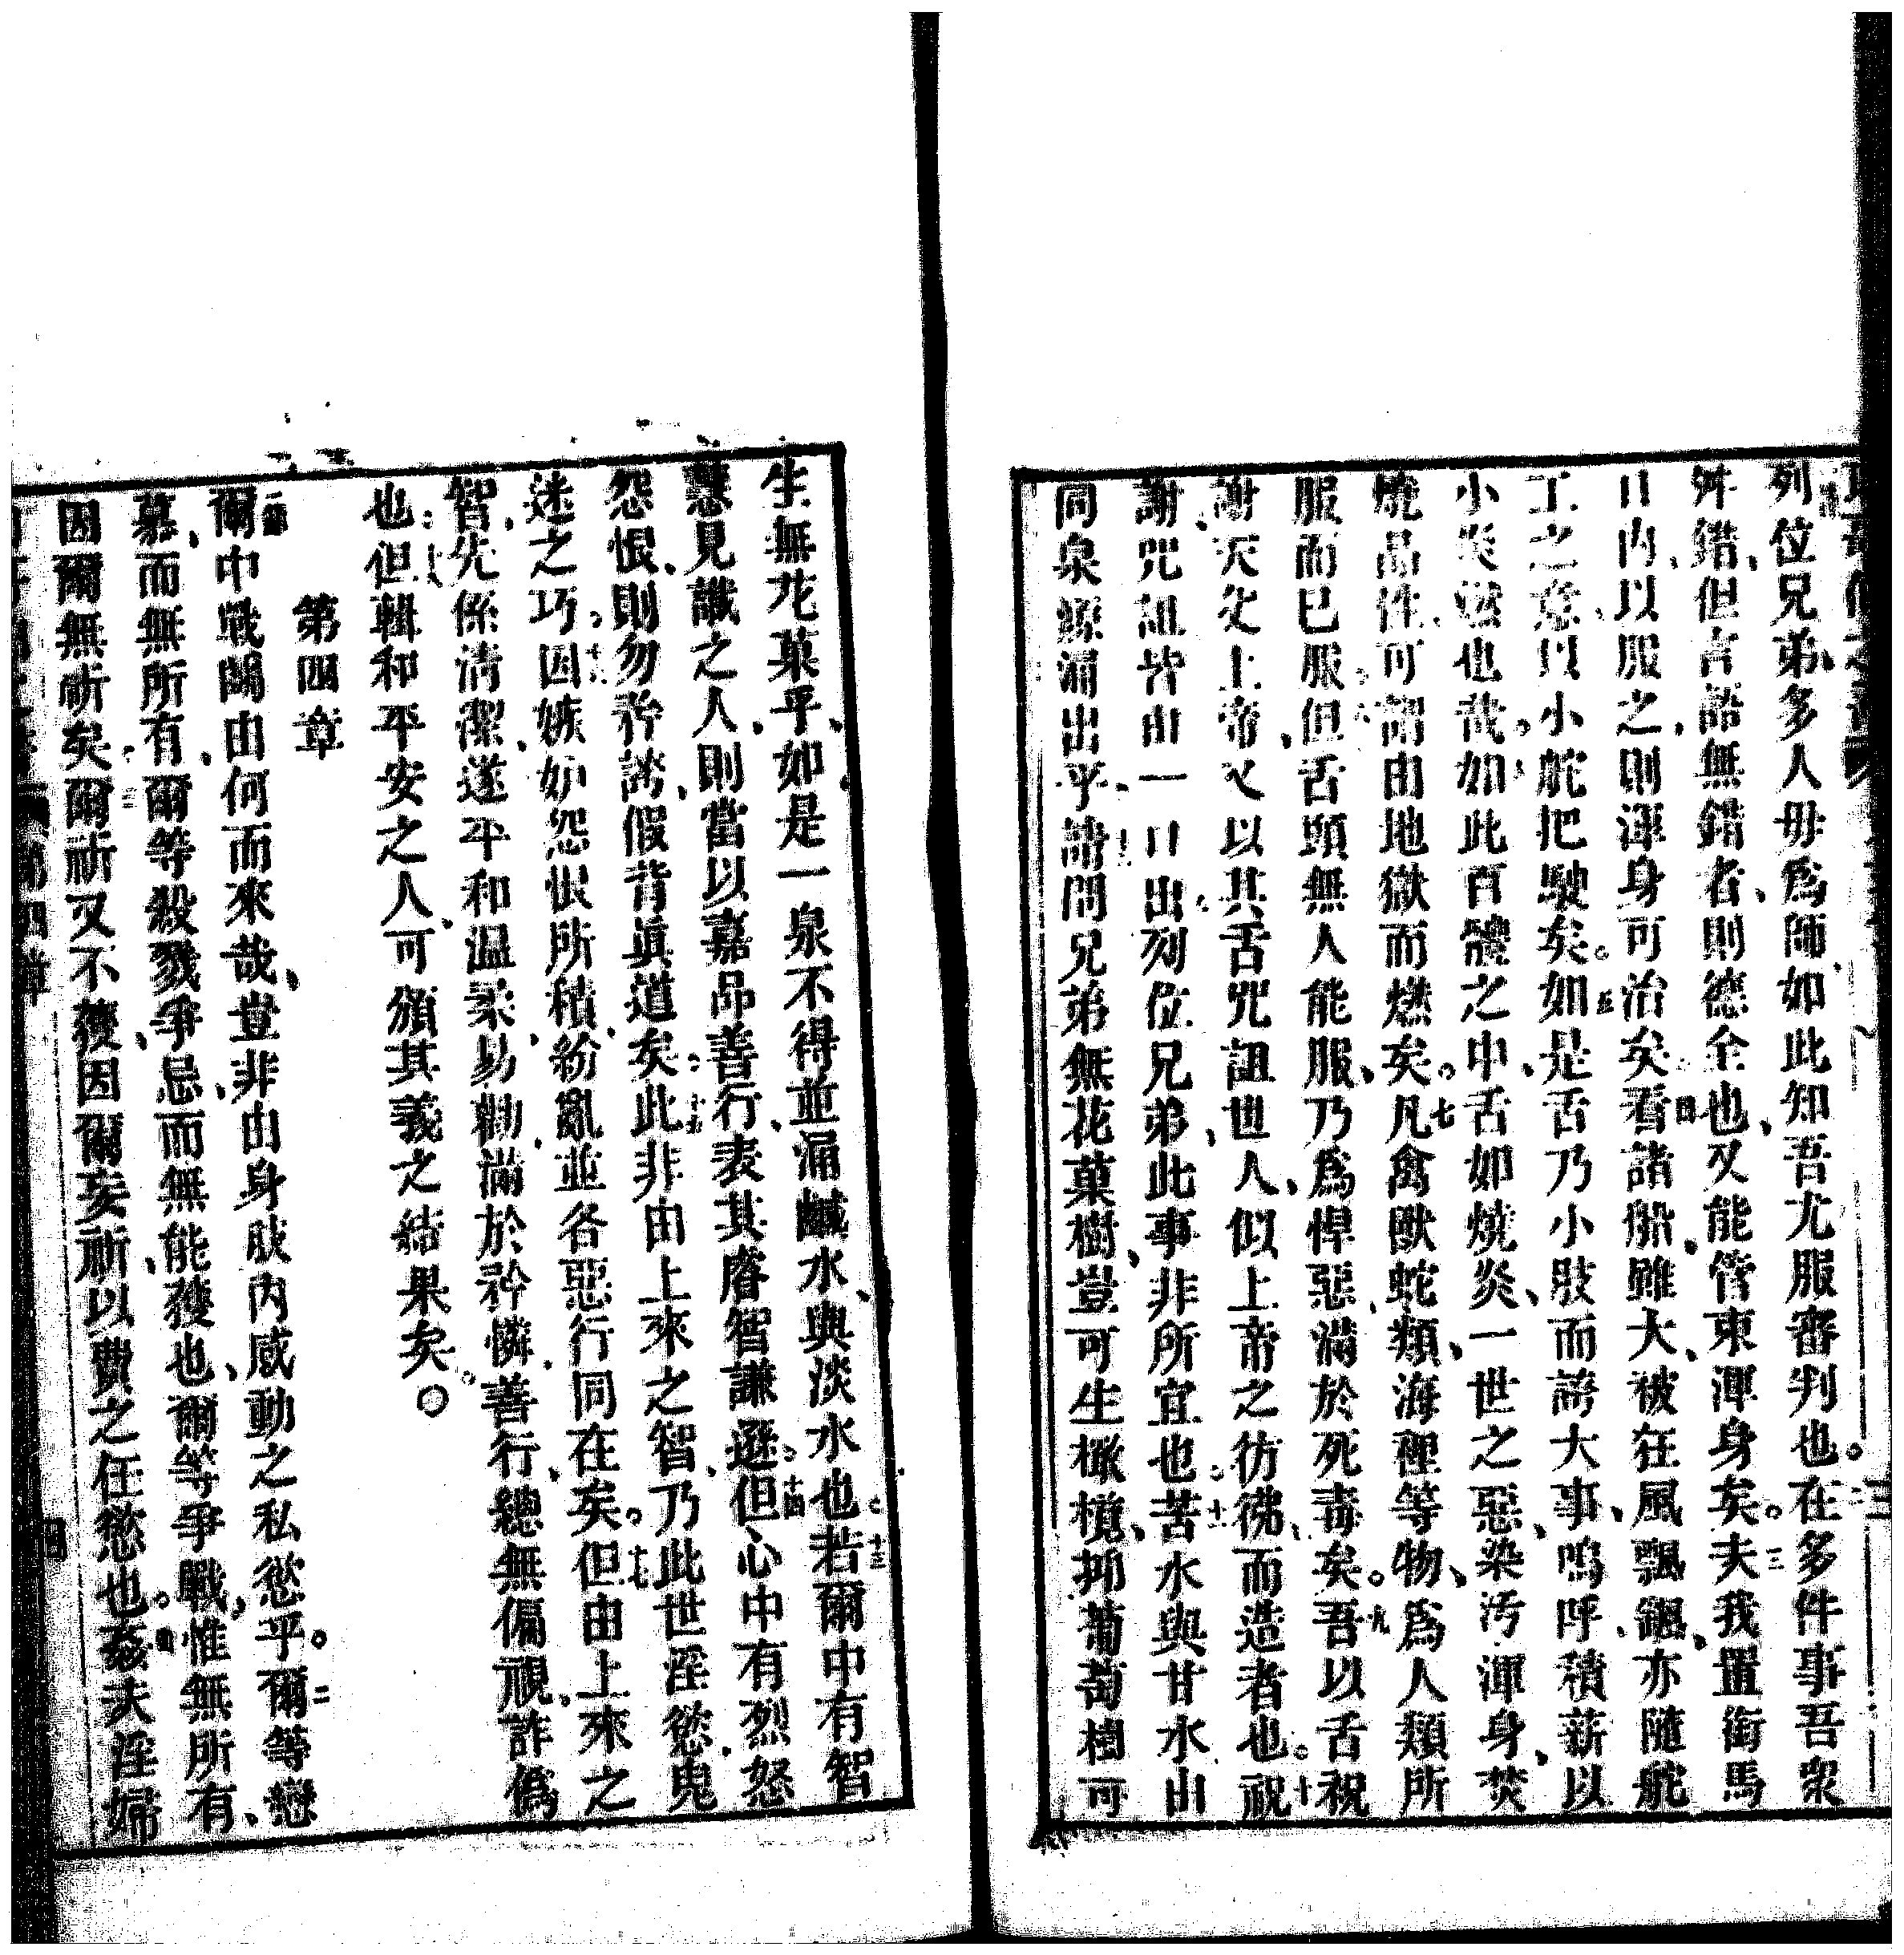 列位兄弟、多人毋爲師、如此知吾尤服審判也。在多件事吾衆
舛錯、但言語無錯者、則德全也、又能管束渾身矣。三夫我置銜馬
口內、以服之、則渾身可治矣。四看諸船、雖大、被狂風飄颻、亦隨舵
工之意、以小舵把駛矣。五如是舌乃小肢而誇大事、嗚呼、積薪以
小炎燃也哉。六如此百體之中、舌如燒炎、一世之惡、染污渾身、焚
燒品性、可謂由地獄而燃矣。七凡禽獸蛇類、海裡等物、爲人類所
服而已服。八但舌頭無人能服、乃爲悍惡、滿於死毒矣。九吾以舌祝
謝天父上帝、又以其舌咒詛世人、似上帝之彷彿、而造者也。十祝
謝、咒詛皆由一口出。列位兄弟、此事非所宜也。十一苦水與甘水由
同泉源湧出乎。十二請問兄弟無花菓樹、豈可生橄欖、抑葡萄樹可
生無花菓乎、如是一泉不得並湧鹹水、與淡水也。十三若爾中有智
慧見識之人、則當以嘉品善行、表其睿智謙遜。十四但心中有烈怒
怨恨、則勿矜誇、假背眞道矣。十五此非由上來之智、乃此世淫慾、鬼
迷之巧。十六因嫉妒怨恨所積、紛亂並各惡行同在矣。十七但由上來之
智、先係清潔、遂平和温柔、易勸、滿於矜憐、善行、總無偏視、詐僞
也。十八但輯和平安之人、可頒其義之結果矣。〇
第四章
一節爾中戰鬬由何而來哉、豈非由身肢內感動之私慾乎。二爾等戀
慕、而無所有、爾等殺戮爭忌、而無能獲也、爾等爭戰、惟無所有、
因爾無祈矣。三爾祈又不獲、因爾妄祈、以費之任慾也。四姦夫淫婦